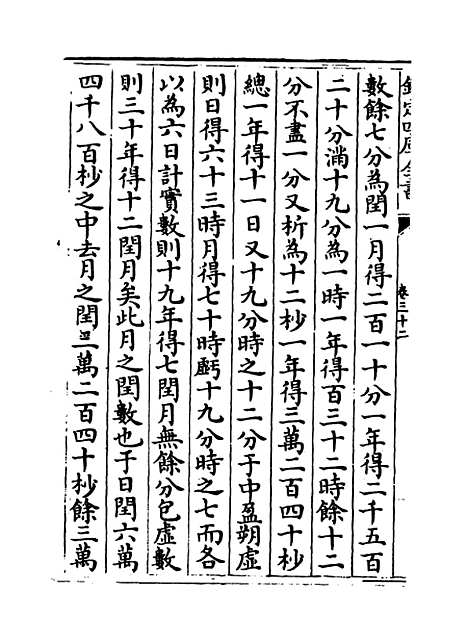 欽定四庫全書
卷三十二
數餘七分為閏一月得二百一十分一年得二千五百
二十分滿十九分為一時一年得百三十二時餘十二
分不盡一分又析為十二秒一年得三萬二百四十秒
總一年得十一日又十九分時之十二分于中盈朔虛
則日得六十三時月得七十時虧十九分時之七而各
以為六日計實數則十九年得七閏月無餘分包虛數
則三十年得十二閏月矣此月之閏數也于日閏六萬
四千八百秒之中去月之閏三萬二百四十秒餘三萬